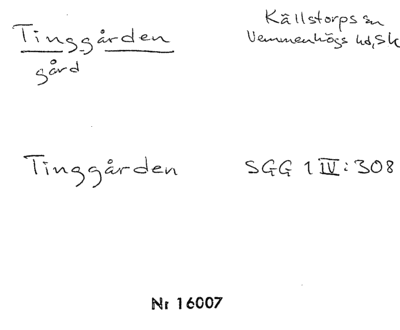 Tinggården
gård
Källstorps sn
Vemmenhögs hd, Sk
Tinggården SGG 1 IV: 308
Nr 16007